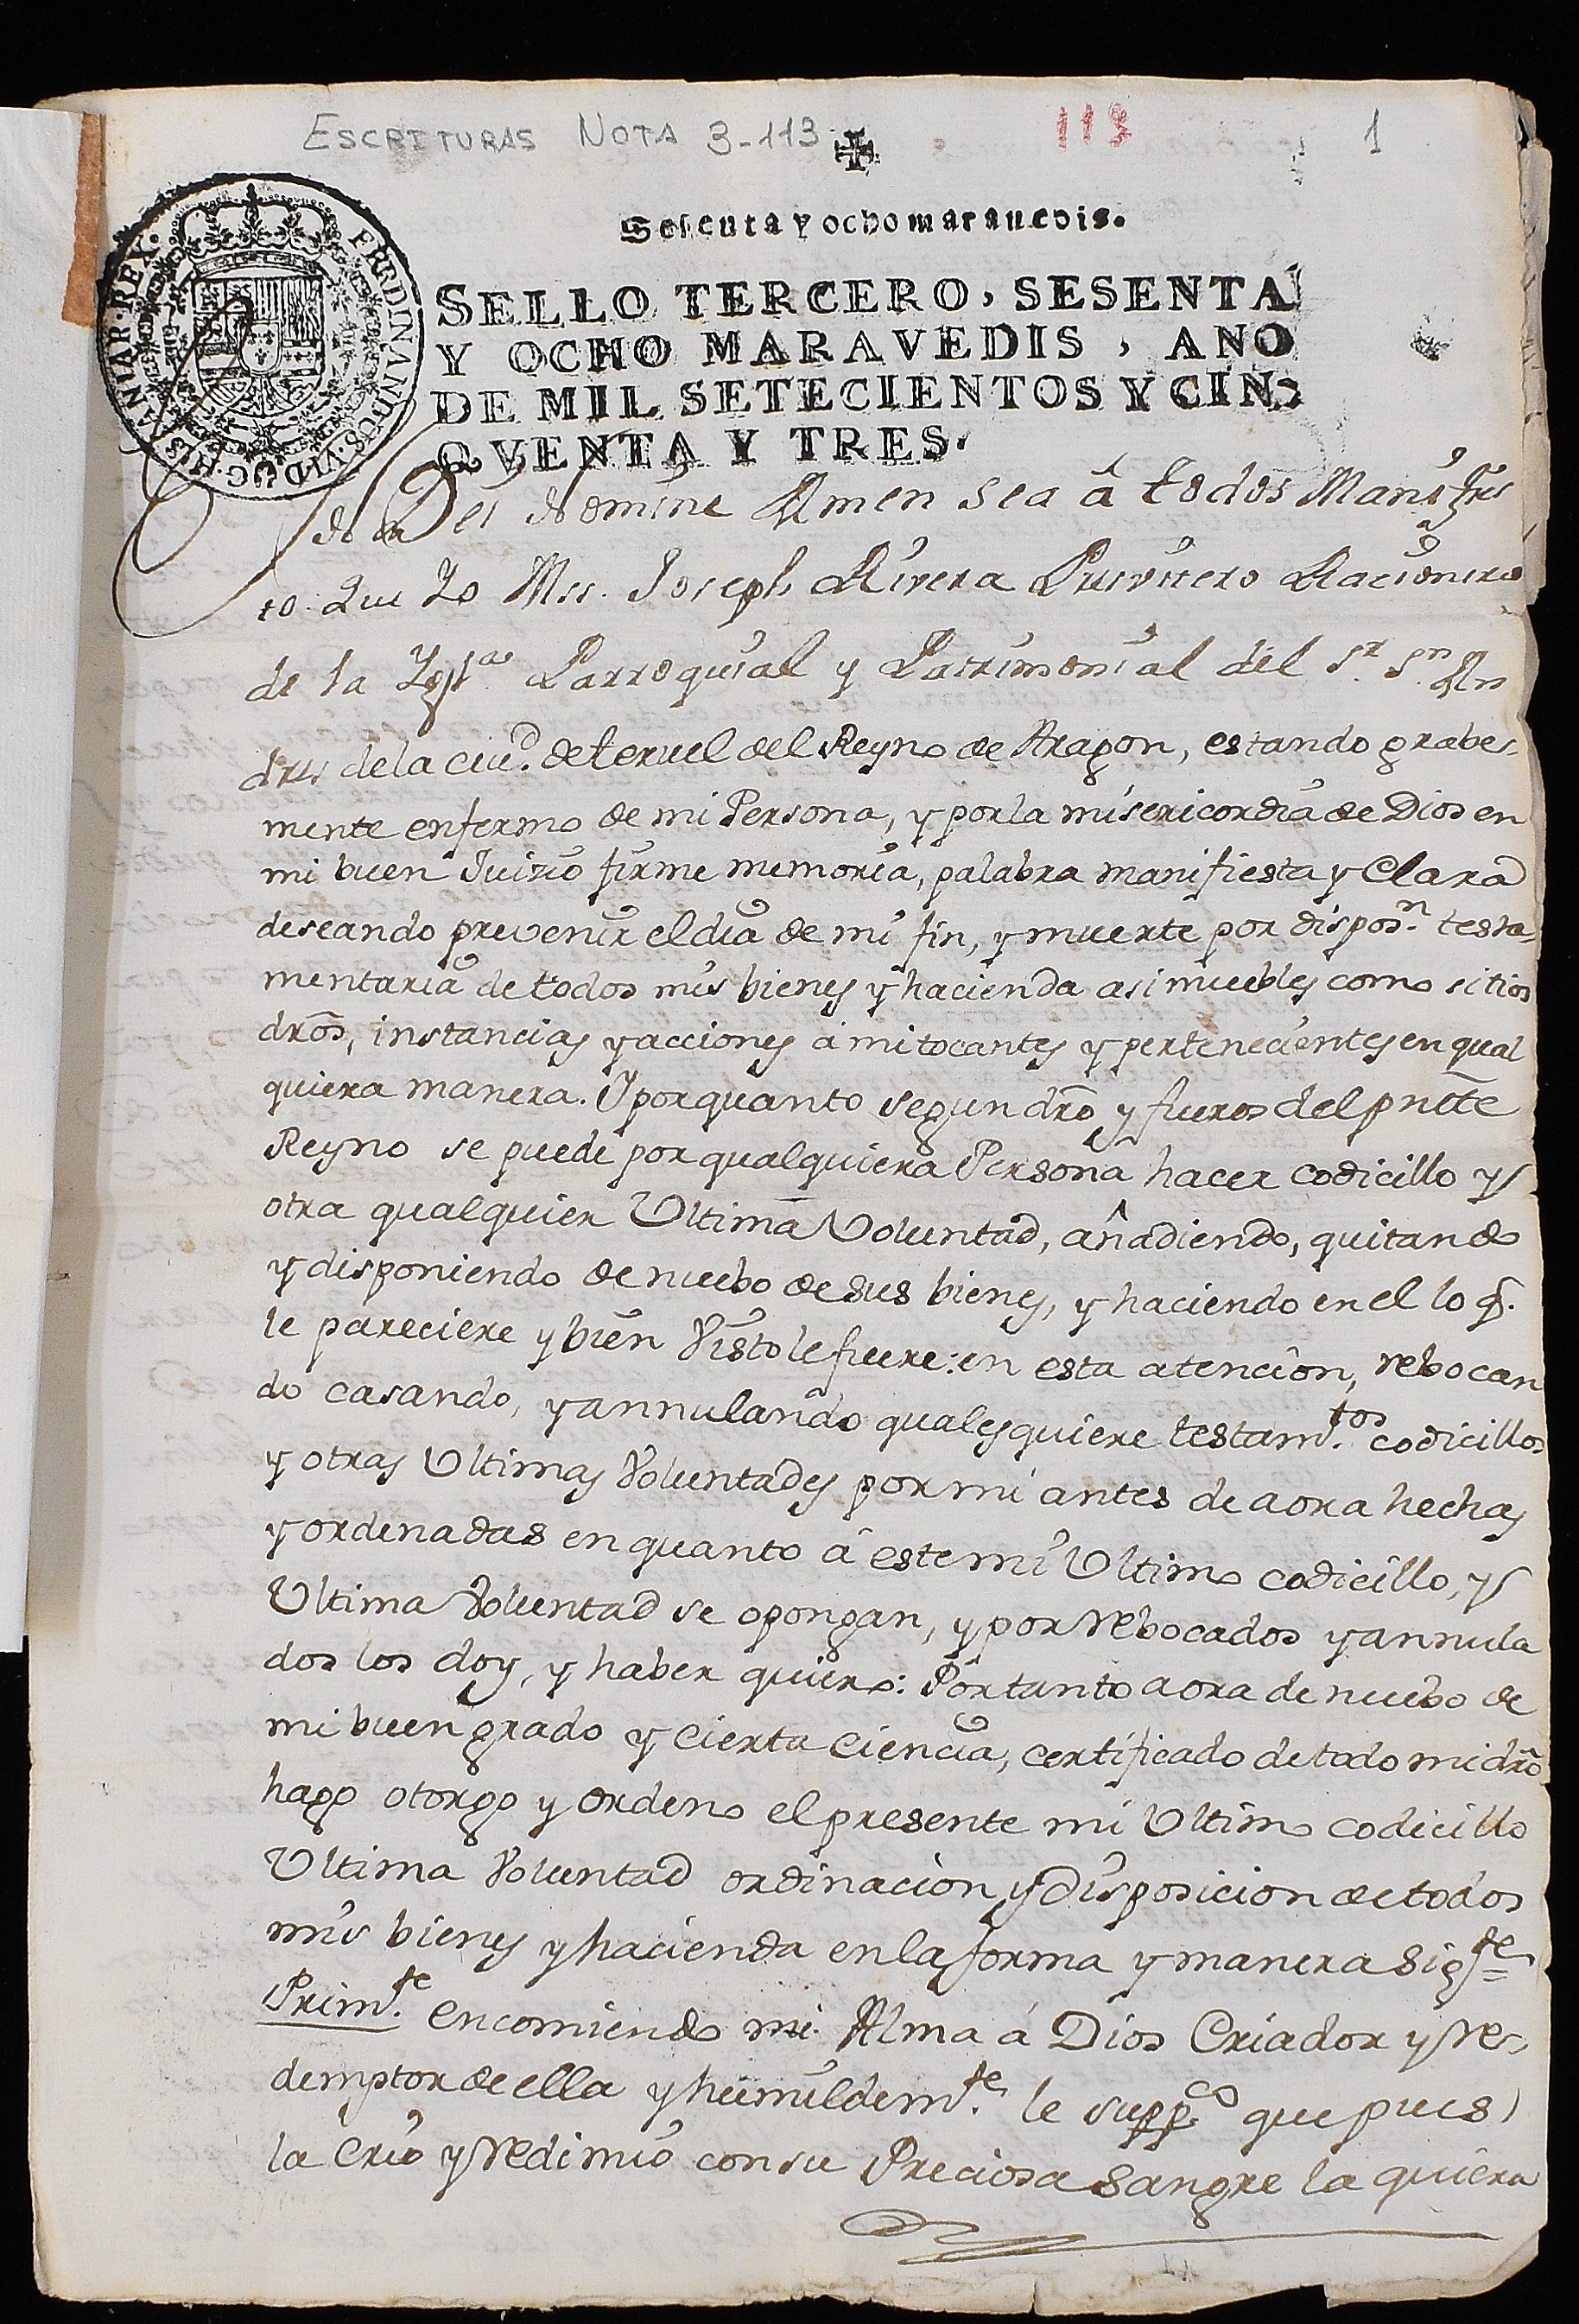 ESCRITURAS NOTA 3-113
113
1
Sesenta y ocho maravedis.
FERDINANDUS·VI·D·G·HISPANIAR·REX·
SELLO TERCERO, SESENTA
Y OCHO MARAVEDIS, AÑO
DE MIL SETECIENTOS Y CIN-
QVENTA Y TRES.
Dei Nomine Amen Sea â todos Manifies
to. Que Yo Mss. Joseph Rivera Presvitero Racionero
de la Yglª. Parroquial y Patrimonial del Sr. Sn. An
dres de la ciud. de teruel del Reyno de Aragon, estando grabe-
mente enfermo de mi Persona, y por la misericordia de Dios en
mi buen Juizio firme memoria, palabra manifiesta y Clara
deseando prevenir el dia de mi fin, y muerte por disposn. testa-
mentaria de todos mis bienes y hacienda asi muebles como sitios
drõs, instancias y acciones á mi tocantes y pertenecientes en qual
quiera manera. Y por quanto segun drõ y fueros del pnte
Reyno se puede por qualquiera Persona hacer codicillo y
otra qualquier Ultima Voluntad, añadiendo, quitando
y disponiendo de nuebo de sus bienes, y haciendo en el lo q.
le pareciere y bien Visto le fuere: en esta atencion, rebocan
do casando, y annulando qualesquiere testamtos. codicillos
y otras Ultimas Voluntades por mi antes de aora hechas
y ordenadas en quanto â este mi Ultimo codicillo, y
Ultima Voluntad se opongan, y por rebocados y annula
dos los doy, y haber quiero: Por tanto aora de nuebo de
mi buen grado y cierta ciencia, certificado de todo mi drõ
hago otorgo y ordeno el presente mi Ultimo codicillo
Ultima Voluntad ordinacion y disposicion de todos
mis bienes y hacienda en la forma y manera sigte=
Primte. encomiendo mi Alma á Dios Criador y re-
demptor de ella y humildemte. le suppco que pues
la Crio y redimio con su Preciosa Sangre la quiera